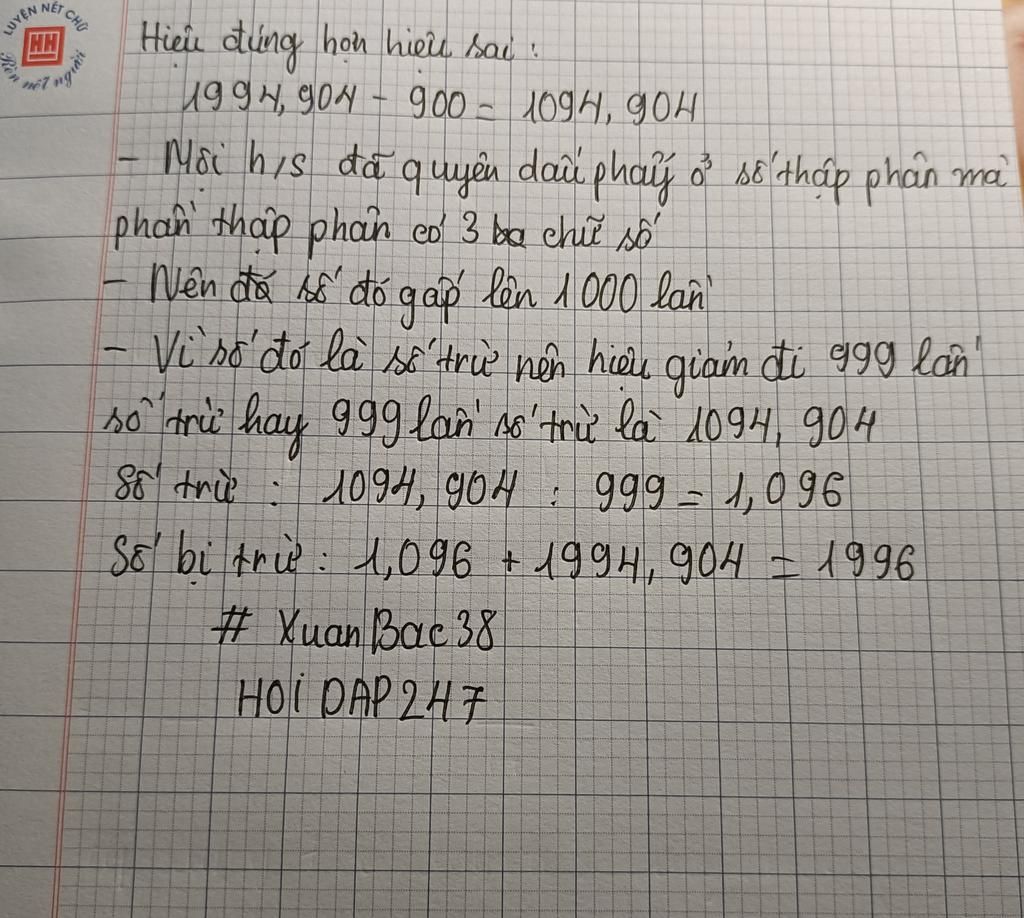 LUYỆN NÉT CHỮ
HH
Rèn nết người
Hiệu đúng hơn hiệu sai :
1994,904 - 900 = 1094,904
- Mỗi h/s đã quyên dấu phẩy ở số thập phân mà
phần thập phân có 3 ba chữ số
- Nên đã số đó gấp lên 1000 lần
- Vì số đó là số trừ nên hiệu giảm đi 999 lần
số trừ hay 999 lần số trừ là 1094,904
Số trừ : 1094,904 : 999 = 1,096
Số bị trừ : 1,096 + 1994,904 = 1996
# XuanBac38
HOI DAP 247